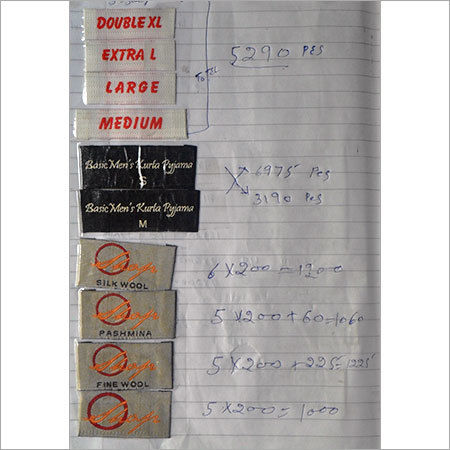 DOUBLE XL
EXTRA L
5290 PES
LARGE
MEDIUM
Basic Men's Kurta Pyjama
S
6975 Pes
Basic Men's Kurta Pyjama
3190 Pes
M
SILK WOOL
6 X 200 = 1200
PASHMINA
5 X 200 + 60 = 1060
FINE WOOL
5 X 200 + 225 = 1225
5 X 200 = 1000